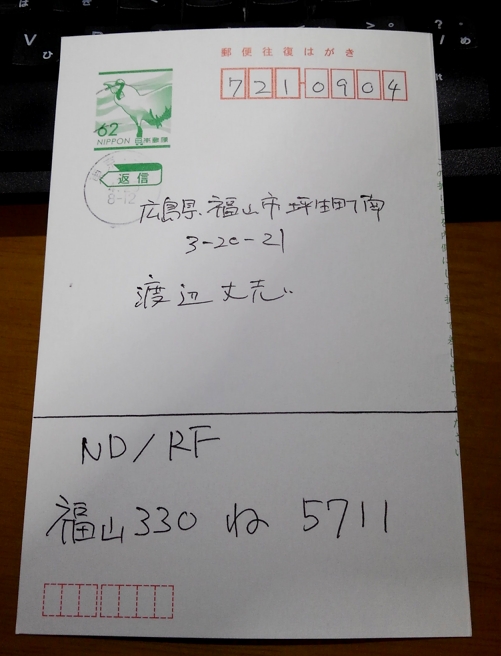 郵便往復はがき
7210904
62
NIPPON 日本郵便
返信
8-12
広島県福山市坪生町南
3-20-21
渡辺丈志
ND/RF
福山330 ね 5711